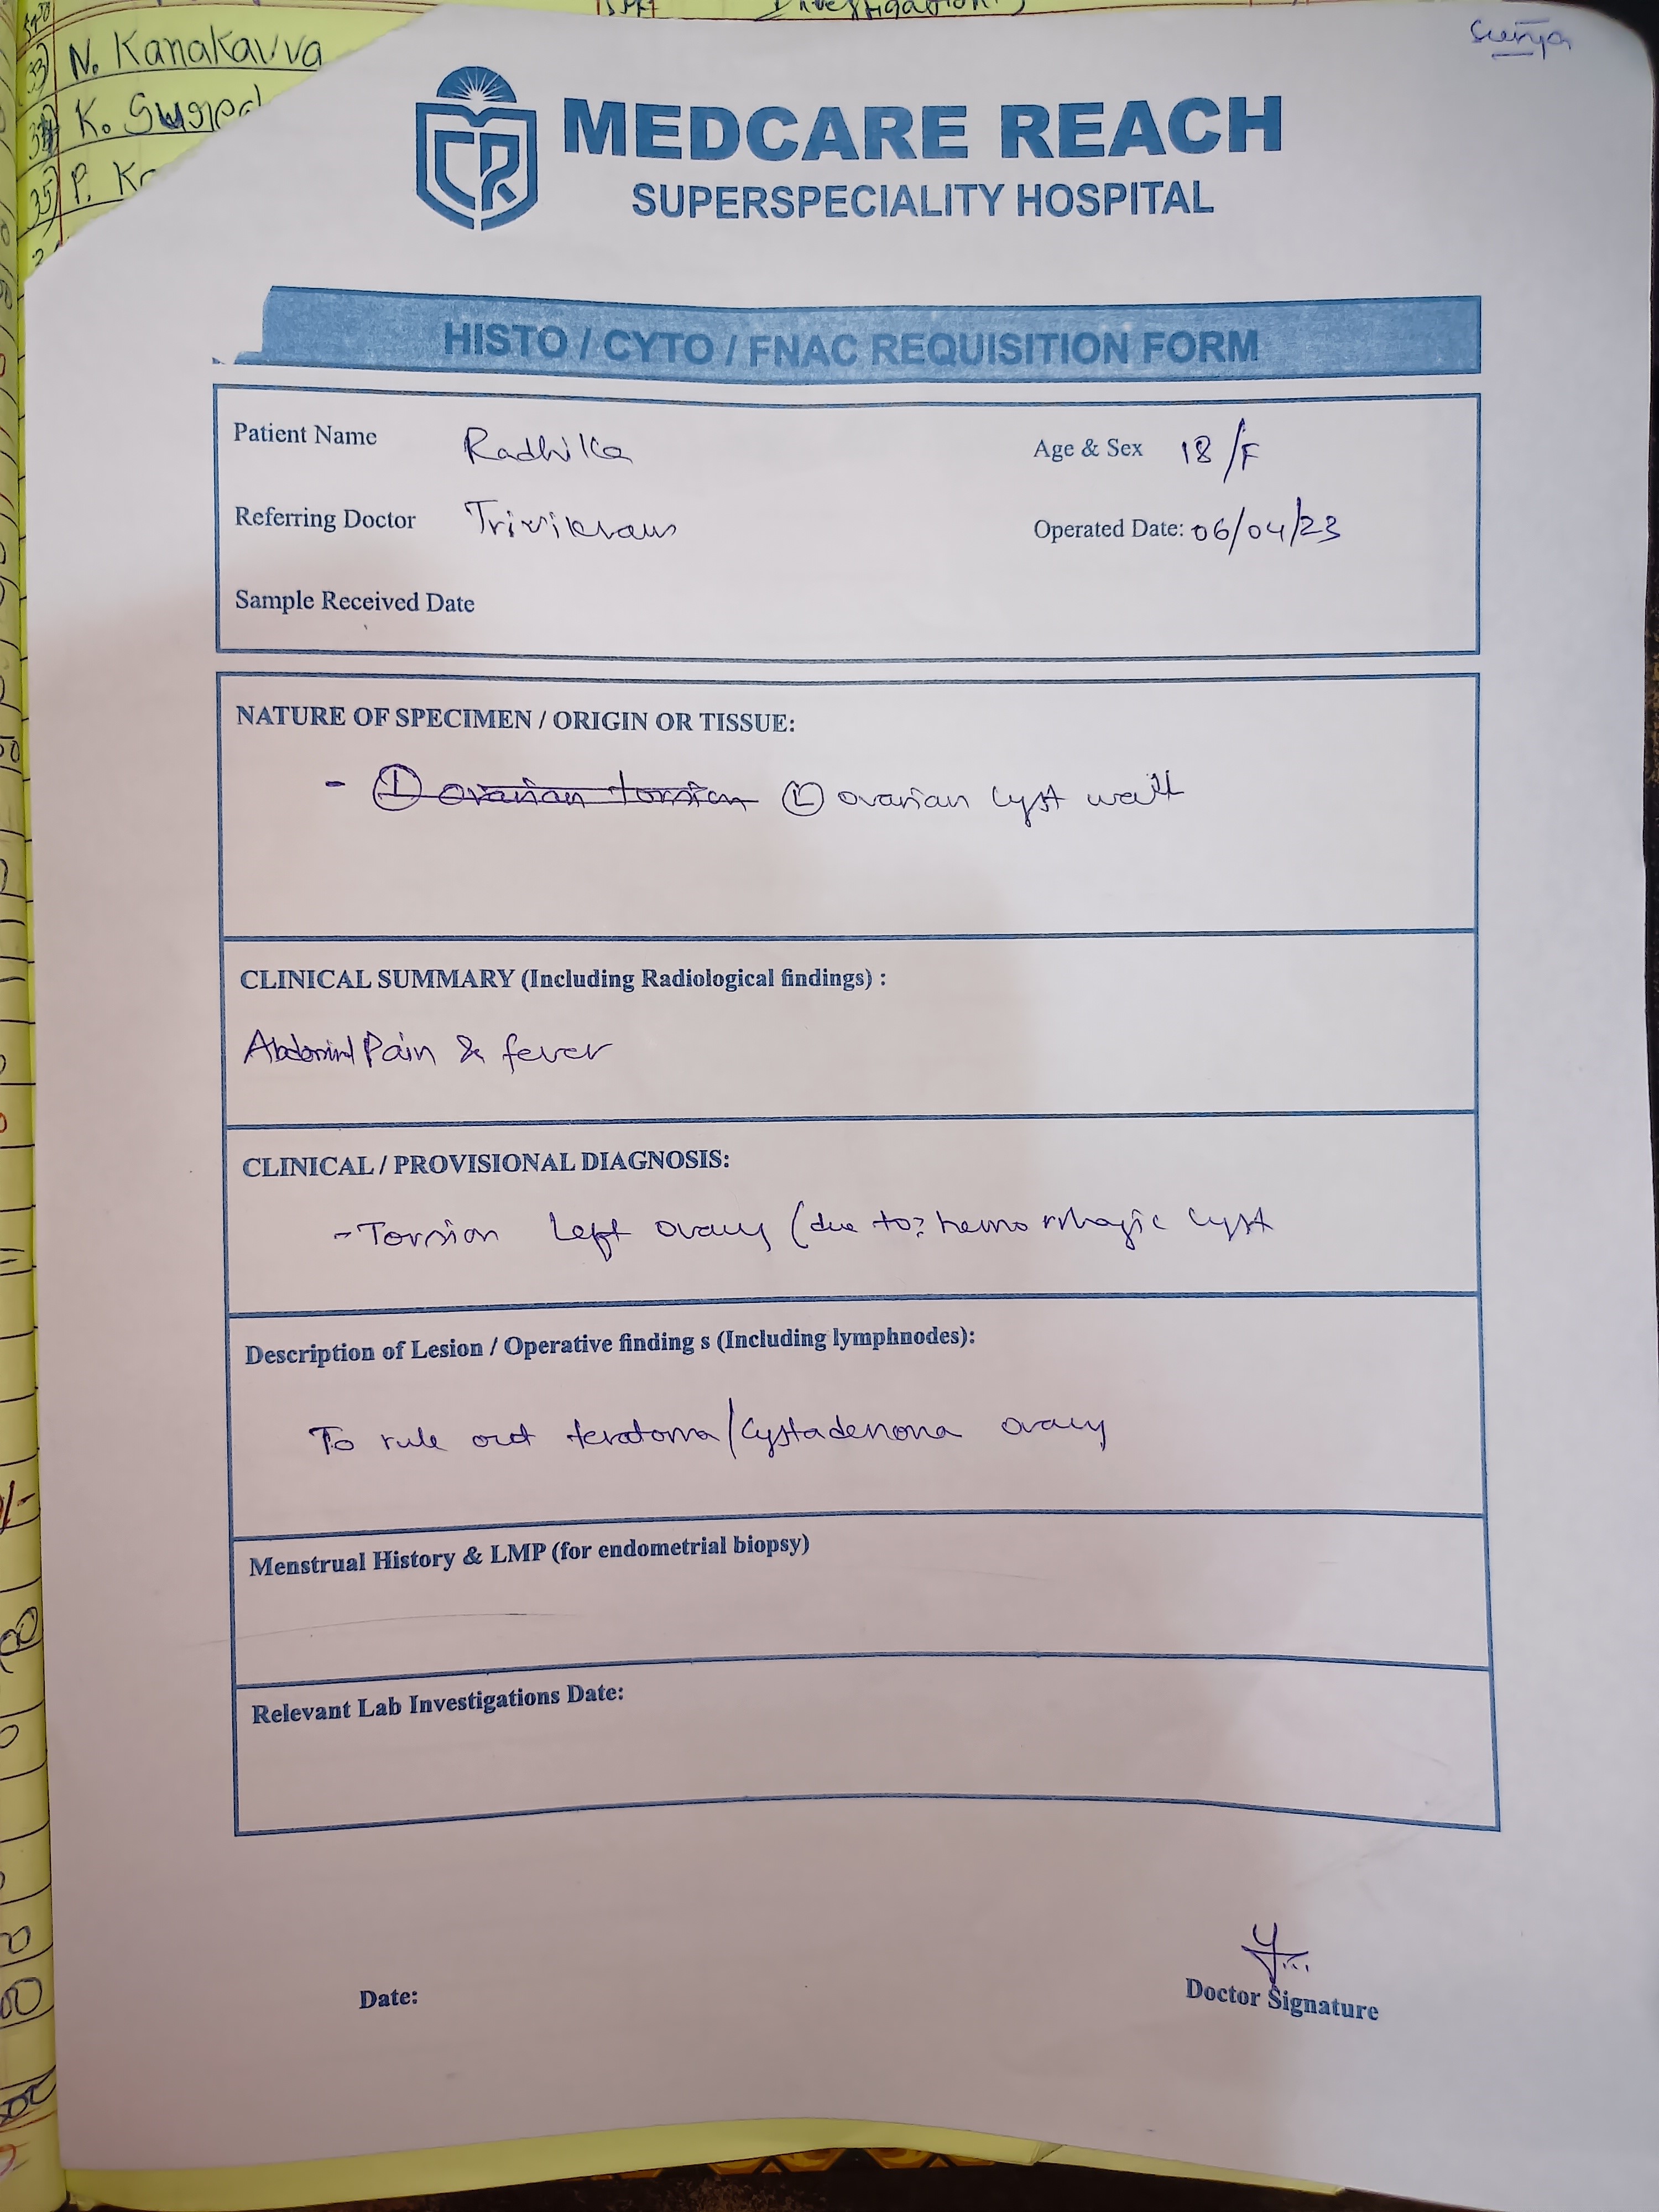 Investigation
33) N. Kanakavva
34 K. Suga
35) P. K
Surya
MEDCARE REACH
SUPERSPECIALITY HOSPITAL
HISTO / CYTO / FNAC REQUISITION FORM
Patient Name Radhika Age & Sex 18/F
Referring Doctor Trivikram Operated Date: 06/04/23
Sample Received Date
NATURE OF SPECIMEN / ORIGIN OR TISSUE:
- (L) ovarian torsion (L) ovarian cyst wall
CLINICAL SUMMARY (Including Radiological findings) :
Abdominl Pain & fever
CLINICAL / PROVISIONAL DIAGNOSIS:
- Torsion Left ovary (due to? hemorrhagic cyst
Description of Lesion / Operative finding s (Including lymphnodes):
To rule out teratoma/Cystadenoma ovary
Menstrual History & LMP (for endometrial biopsy)
Relevant Lab Investigations Date:
Date:
Doctor Signature